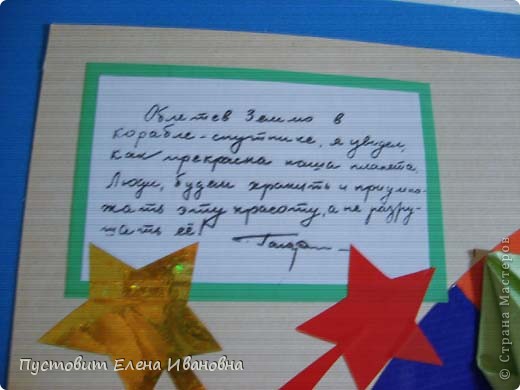 Облетев Землю в
корабле-спутнике, я увидел,
как прекрасна наша планета.
Люди, будем хранить и приумно-
жать эту красоту, а не разру-
шать её!
Гагарин
Пустовит Елена Ивановна
© Страна Мастеров